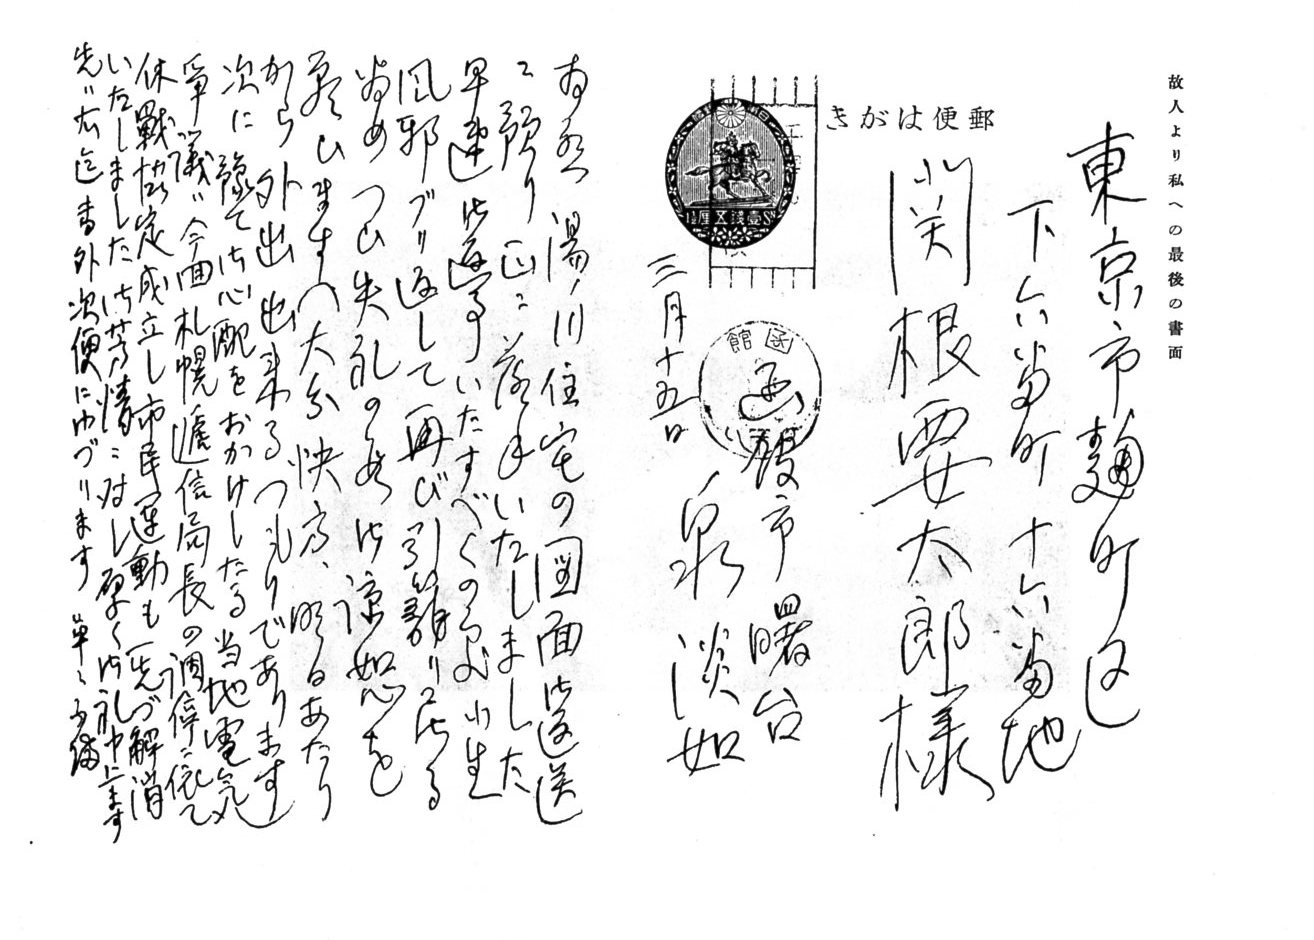 故人より私への最後の書面
東京市麹町区
下六番町十六番地
関根要太郎様
郵便はがき
函館
函館市曙台
泉淡如
三月十五日
湯ノ川住宅の図面御送
ニ預り正ニ落手いたしました
早速御返事いたすべくの処小生
風邪ブリ返して再び引籠り居る
為めつひ失礼の段御諒恕を
願ひます大分快方、明日あたり
から外出出来るつもりであります
次に豫て御心配をおかけしたる当地電気
争議ハ今回札幌逓信局長の調停ニ依て
休戦協定成立し市民運動も一先づ解消
いたしました御芳情ニ対し厚く御礼申上ます
先ハ右迄書外次便にゆづります 草々